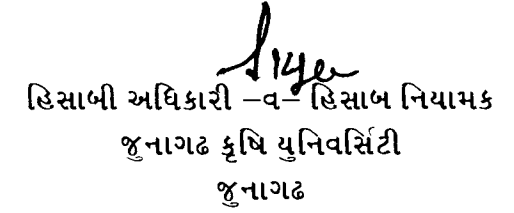 હિસાબી અધિકારી –વ– હિસાબ નિયામક
જુનાગઢ કૃષિ યુનિવર્સિટી
જુનાગઢ